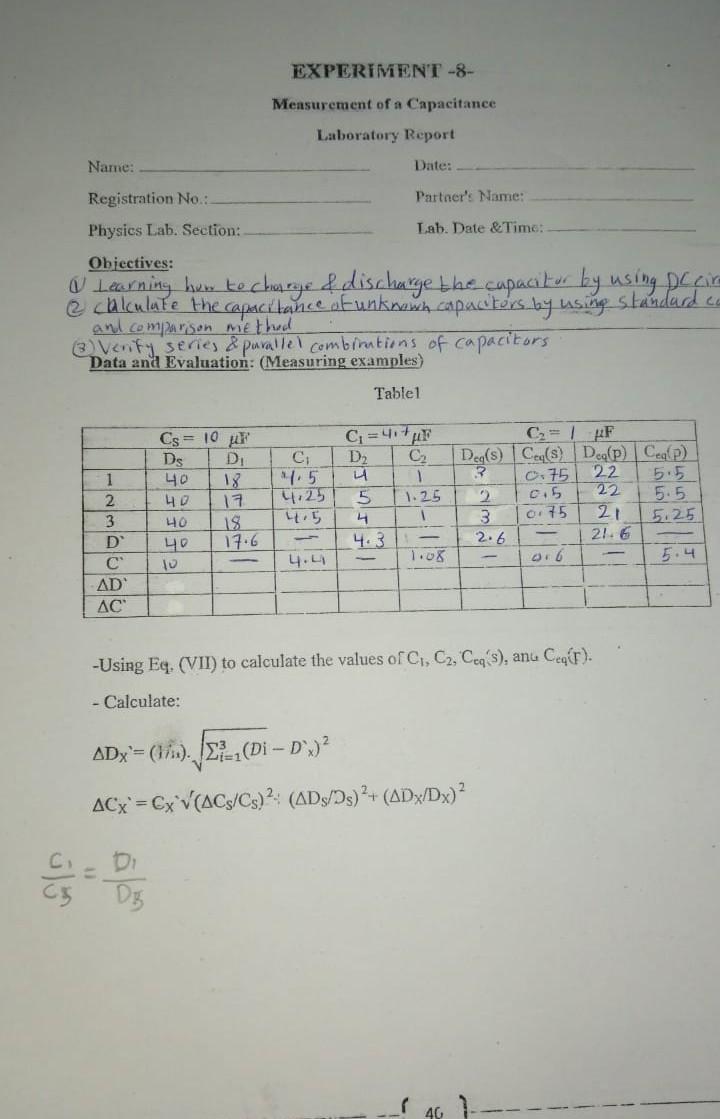 EXPERIMENT -8-
Measurement of a Capacitance
Laboratory Report
Name: Date:
Registration No.: Partner's Name:
Physics Lab. Section: Lab. Date &Time:
Objectives:
① Learning how to charge & discharge the capacitor by using DC cir
② calculate the capacitance of unknown capacitors by using standard c
and comparison method
③ Verify series & parallel combinations of capacitors
Data and Evaluation: (Measuring examples)
Table1
Cs = 10 μF C₁ = 4.7 μF C₂ = 1 μF
Ds D₁ C₁ D₂ C₂ Deq(s) Ceq(s) Deq(p) Ceq(p)
1 40 18 4.5 4 1 3 0.75 22 5.5
2 40 17 4.25 5 1.25 2 0.5 22 5.5
3 40 18 4.5 4 1 3 0.75 21 5.25
D` 40 17.6 — 4.3 — 2.6 — 21.6 —
C` 10 — 4.4 — 1.08 — 0.6 — 5.4
ΔD`
ΔC`
-Using Eq. (VII) to calculate the values of C₁, C₂, Ceq(s), and Ceq(p).
- Calculate:
ΔDx`= (1/n).√Σ³i=1(Di − D`x)²
ΔCx` = Cx`√(ΔCs/Cs)²+ (ΔDs/Ds)²+ (ΔDx/Dx)²
C₁/Cs = D₁/Ds
40